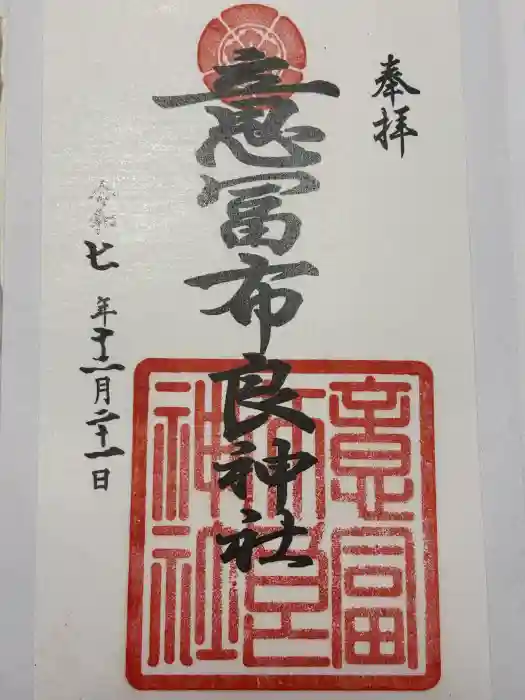 奉拝
意冨布良神社
意冨布良神社
令和七年十二月二十一日